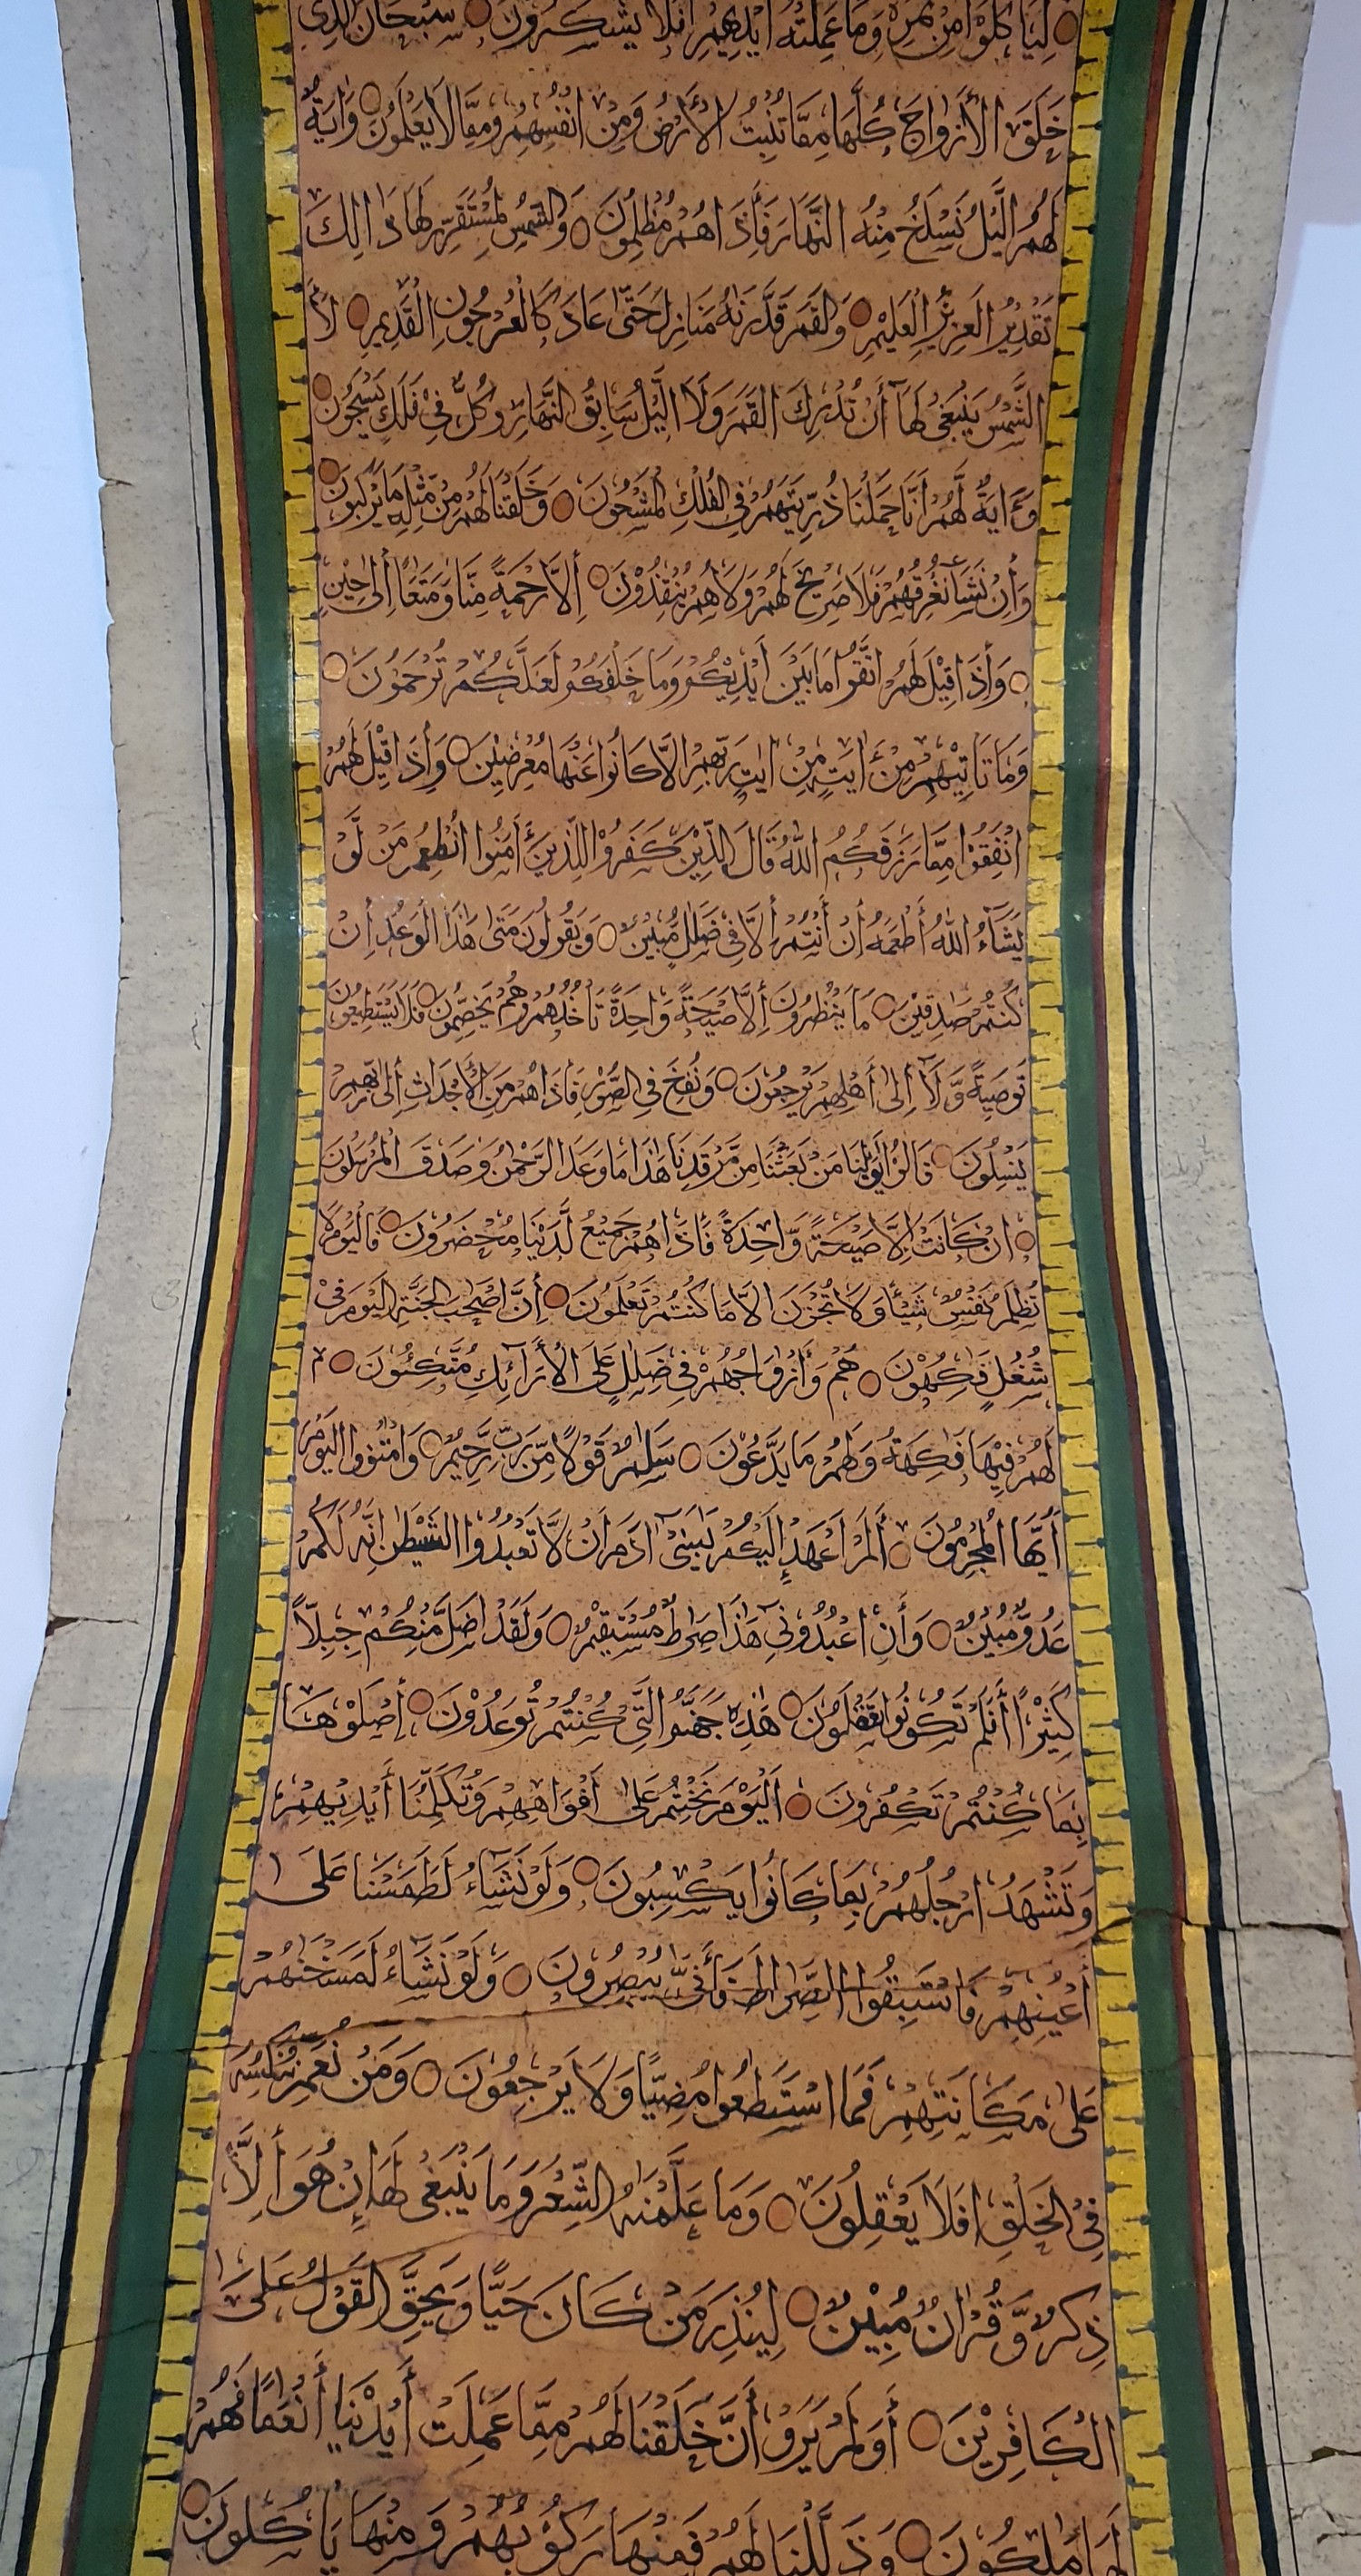 لِيَاْكُلُوْا مِنْ ثَمَرِهٖ وَمَا عَمِلَتْهُ اَيْدِيْهِمْ اَفَلَا يَشْكُرُوْنَ سُبْحَانَ الَّذِي
خَلَقَ الْأَزْوَاجَ كُلَّهَا مِمَّا تُنْبِتُ الْأَرْضُ وَمِنْ اَنْفُسِهِمْ وَمِمَّا لَا يَعْلَمُوْنَ وَاٰيَةٌ
لَهُمُ الَّيْلُ نَسْلَخُ مِنْهُ النَّهَارَ فَأِذَا هُمْ مُظْلِمُوْنَ وَالشَّمْسُ لِمُسْتَقَرٍّ لَهَا ذَالِكَ
تَقْدِيْرُ الْعَزِيْزِ الْعَلِيْمِ وَالْقَمَرَ قَدَّرْنٰهُ مَنَازِلَ حَتّٰى عَادَ كَالْعُرْجُوْنِ الْقَدِيْمِ لَا
الشَّمْسُ يَنْبَغِى لَهَآ أَنْ تُدْرِكَ الْقَمَرَ وَلَا الَّيْلُ سَابِقُ النَّهَارِ وَكُلٌّ فِىْ فَلَكٍ يَسْبَحُوْنَ
وَءَايَةٌ لَّهُمْ أَنَّا حَمَلْنَا ذُرِّيَّتَهُمْ فِى الْفُلْكِ الْمَشْحُوْنَ وَخَلَقْنَا لَهُمْ مِنْ مِّثْلِهِ مَا يَرْكَبُوْنَ
وَأِنْ نَشَأْ نُغْرِقْهُمْ فَلَا صَرِيْخَ لَهُمْ وَلَا هُمْ يُنْقَذُوْنَ أِلَّا رَحْمَةً مِنَّا وَمَتَعًا أِلٰى حِيْنٍ
وَأِذَا قِيْلَ لَهُمُ اتَّقُوْا مَا بَيْنَ اَيْدِيْكُمْ وَمَا خَلْفَكُمْ لَعَلَّكُمْ تُرْحَمُوْنَ
وَمَا تَاتِيْهِمْ مِنْ اٰيَتٍ مِنْ اٰيٰتِ رَبِّهِمْ اِلَّا كَانُوْا عَنْهَا مُعْرِضِيْنَ وَأِذَا قِيْلَ لَهُمْ
اَنْفِقُوْا مِمَّا رَزَقَكُمُ اللّٰهُ قَالَ الَّذِيْنَ كَفَرُوْا لِلَّذِيْنَ أٰمَنُوْا اَنُطْعِمُ مَنْ لَّوْ
يَشَآءُ اللّٰهُ أَطْعَمَهُ أِنْ أَنْتُمْ أِلَّا فِى ضَلٰلٍ مُبِيْنٍ وَيَقُوْلُوْنَ مَتٰى هٰذَا الْوَعْدُ أِنْ
كُنْتُمْ صٰدِقِيْنَ مَا يَنْظُرُوْنَ أِلَّا صَيْحَةً وَاحِدَةً تَاْخُذُهُمْ وَهُمْ يَخِصِّمُوْنَ فَلَا يَسْتَطِيْعُوْنَ
تَوْصِيَةً وَّلَآ اِلٰى أَهْلِهِمْ يَرْجِعُوْنَ وَنُفِخَ فِى الصُّوْرِ فَاِذَا هُمْ مِنَ الْأَجْدَاثِ اِلٰى رَبِّهِمْ
يَنْسِلُوْنَ قَالُوْا يٰوَيْلَنَا مَنْ بَعَثَنَا مِنْ مَّرْقَدِنَا هٰذَا مَا وَعَدَ الرَّحْمٰنُ وَصَدَقَ الْمُرْسَلُوْنَ
اِنْ كَانَتْ اِلَّا صَيْحَةً وَّاحِدَةً فَأِذَا هُمْ جَمِيْعٌ لَّدَيْنَا مُحْضَرُوْنَ فَالْيَوْمَ لَا
تُظْلَمُ نَفْسٌ شَيْئًا وَلَا تُجْزَوْنَ اِلَّا مَا كُنْتُمْ تَعْلَمُوْنَ أِنَّ اَصْحٰبَ الْجَنَّةِ الْيَوْمَ فِىْ
شُغُلٍ فٰكِهُوْنَ هُمْ وَأَزْوَاجُهُمْ فِى ضِلٰلٍ عَلَى الْأَرَآئِكِ مُتَّكِئُوْنَ
لَهُمْ فِيْهَا فَاكِهَةٌ وَلَهُمْ مَا يَدَّعُوْنَ سَلٰمٌ قَوْلًا مِّنْ رَبٍّ رَّحِيْمٌ وَامْتٰزُوا الْيَوْمَ
أَيُّهَا الْمُجْرِمُوْنَ أَلَمْ اَعْهَدْ اِلَيْكُمْ يٰبَنِىْٓ اٰدَمَ اَنْ لَّا تَعْبُدُوا الشَّيْطٰنَ اِنَّهٗ لَكُمْ
عَدُوٌّ مُبِيْنٌ وَأَنِ اعْبُدُوْنِى هٰذَا صِرٰطٌ مُسْتَقِيْمٌ وَلَقَدْ اَضَلَّ مِنْكُمْ جِبِلًّا
كَثِيْرًا أَفَلَمْ تَكُوْنُوْا تَعْقِلُوْنَ هٰذِهٖ جَهَنَّمُ الَّتِىْ كُنْتُمْ تُوْعَدُوْنَ أِصْلَوْهَا
بِمَا كُنْتُمْ تَكْفُرُوْنَ اَلْيَوْمَ نَخْتِمُ عَلٰى اَفْوَاهِهِمْ وَتُكَلِّمُنَا أَيْدِيْهِمْ
وَتَشْهَدُ اَرْجُلُهُمْ بِمَا كَانُوْا يَكْسِبُوْنَ وَلَوْ نَشَآءُ لَطَمَسْنَا عَلٰى
أَعْيُنِهِمْ فَاسْتَبَقُوا الصِّرَاطَ فَأَنّٰى يُبْصِرُوْنَ وَلَوْ نَشَآءُ لَمَسَخْنٰهُمْ
عَلٰى مَكَانَتِهِمْ فَمَا اسْتَطٰعُوا مُضِيًّا وَلَا يَرْجِعُوْنَ وَمَنْ نُعَمِّرْهُ نُنَكِّسْهُ
فِى الْخَلْقِ اَفَلَا يَعْقِلُوْنَ وَمَا عَلَّمْنٰهُ الشِّعْرَ وَمَا يَنْبَغِى لَهٗ اِنْ هُوَ أِلَّا
ذِكْرٌ وَّقُرْاٰنٌ مُبِيْنٌ لِيُنْذِرَ مَنْ كَانَ حَيًّا وَيَحِقَّ الْقَوْلُ عَلٰى
الْكَافِرِيْنَ أَوَلَمْ يَرَوْا أَنَّ خَلَقْنَا لَهُمْ مِمَّا عَمِلَتْ أَيْدِيْنَا أَنْعٰمًا فَهُمْ
لَهَا مٰلِكُوْنَ وَذَلَّلْنَا لَهُمْ فَمِنْهَا رَكُوْبُهُمْ وَمِنْهَا يَأْكُلُوْنَ